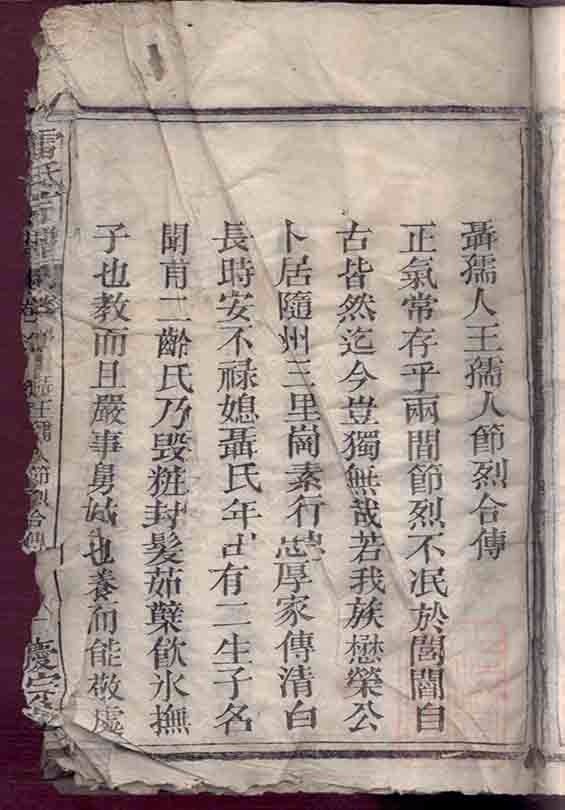 聶孺人王孺人節烈合傳
正氣常存乎兩間節烈不泯於閭閻自
古皆然迄今豈獨無哉若我族懋榮公
卜居隨州三里崗素行忠厚家傳清白
長時安不祿媳聶氏年卄有二生子名
聞甫二齡氏乃毀粧封髮茹櫱飲氷撫
子也教而且嚴事舅姑也養而能敬處
雷氏宗譜
王孺人節烈合傳
慶宗